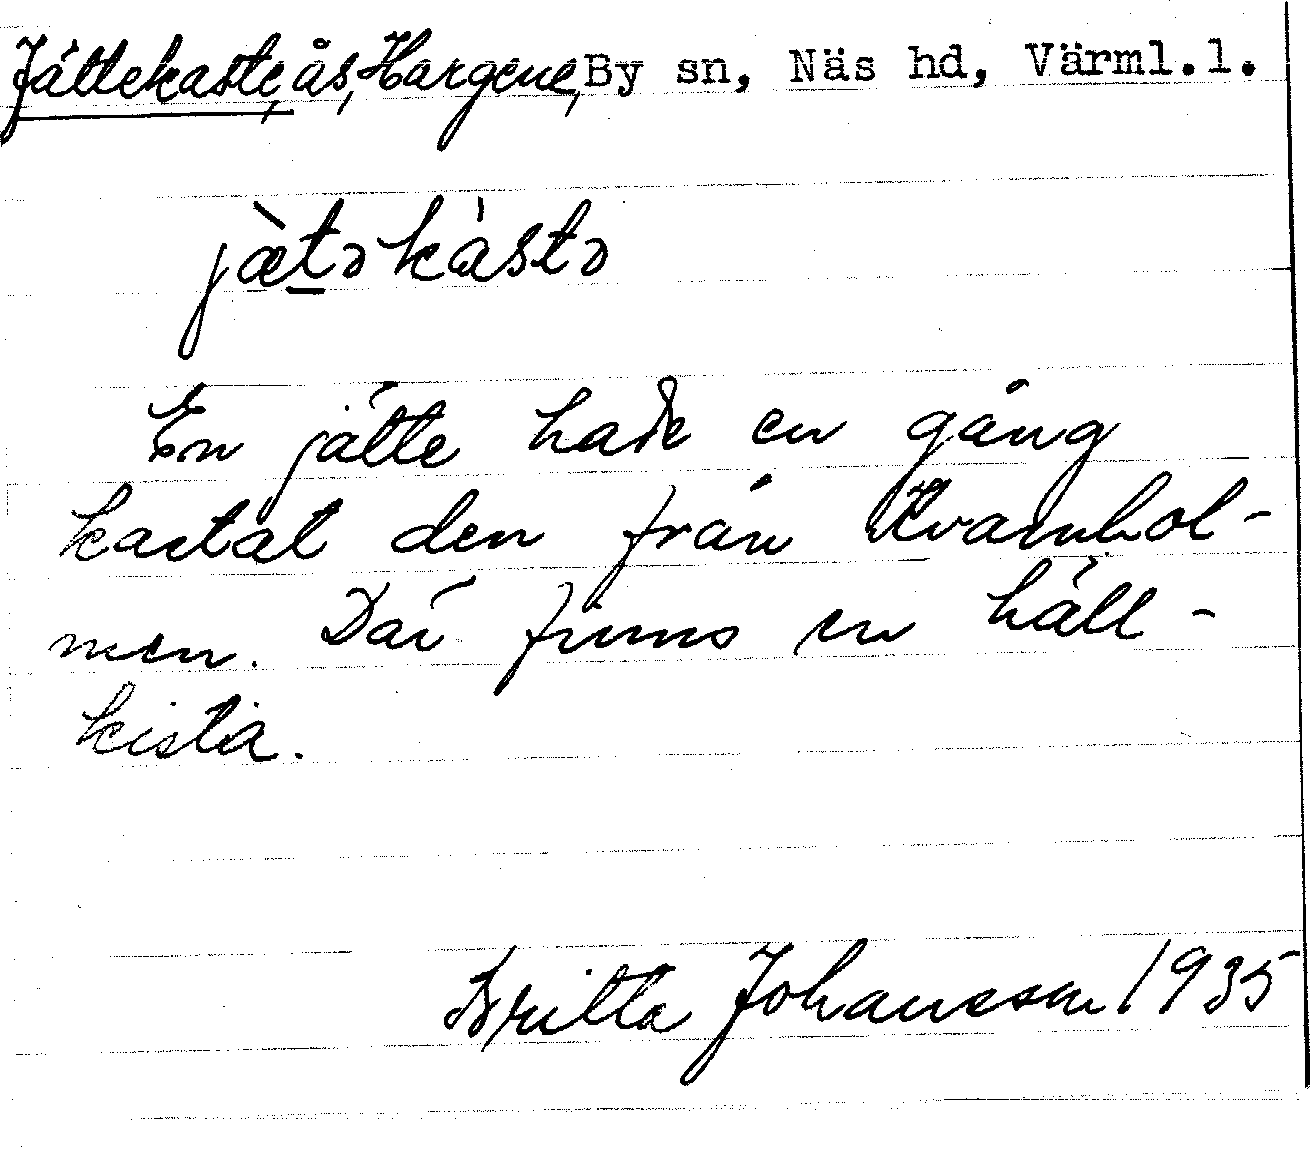 Jättekaste, ås, Hargene, By sn, Näs hd, Värml.l.
jæ̀təkàstə
En jätte hade en gång
kastat den från Kvarnhol-
men. Där finns en häll-
kista.
Britta Johansson 1935